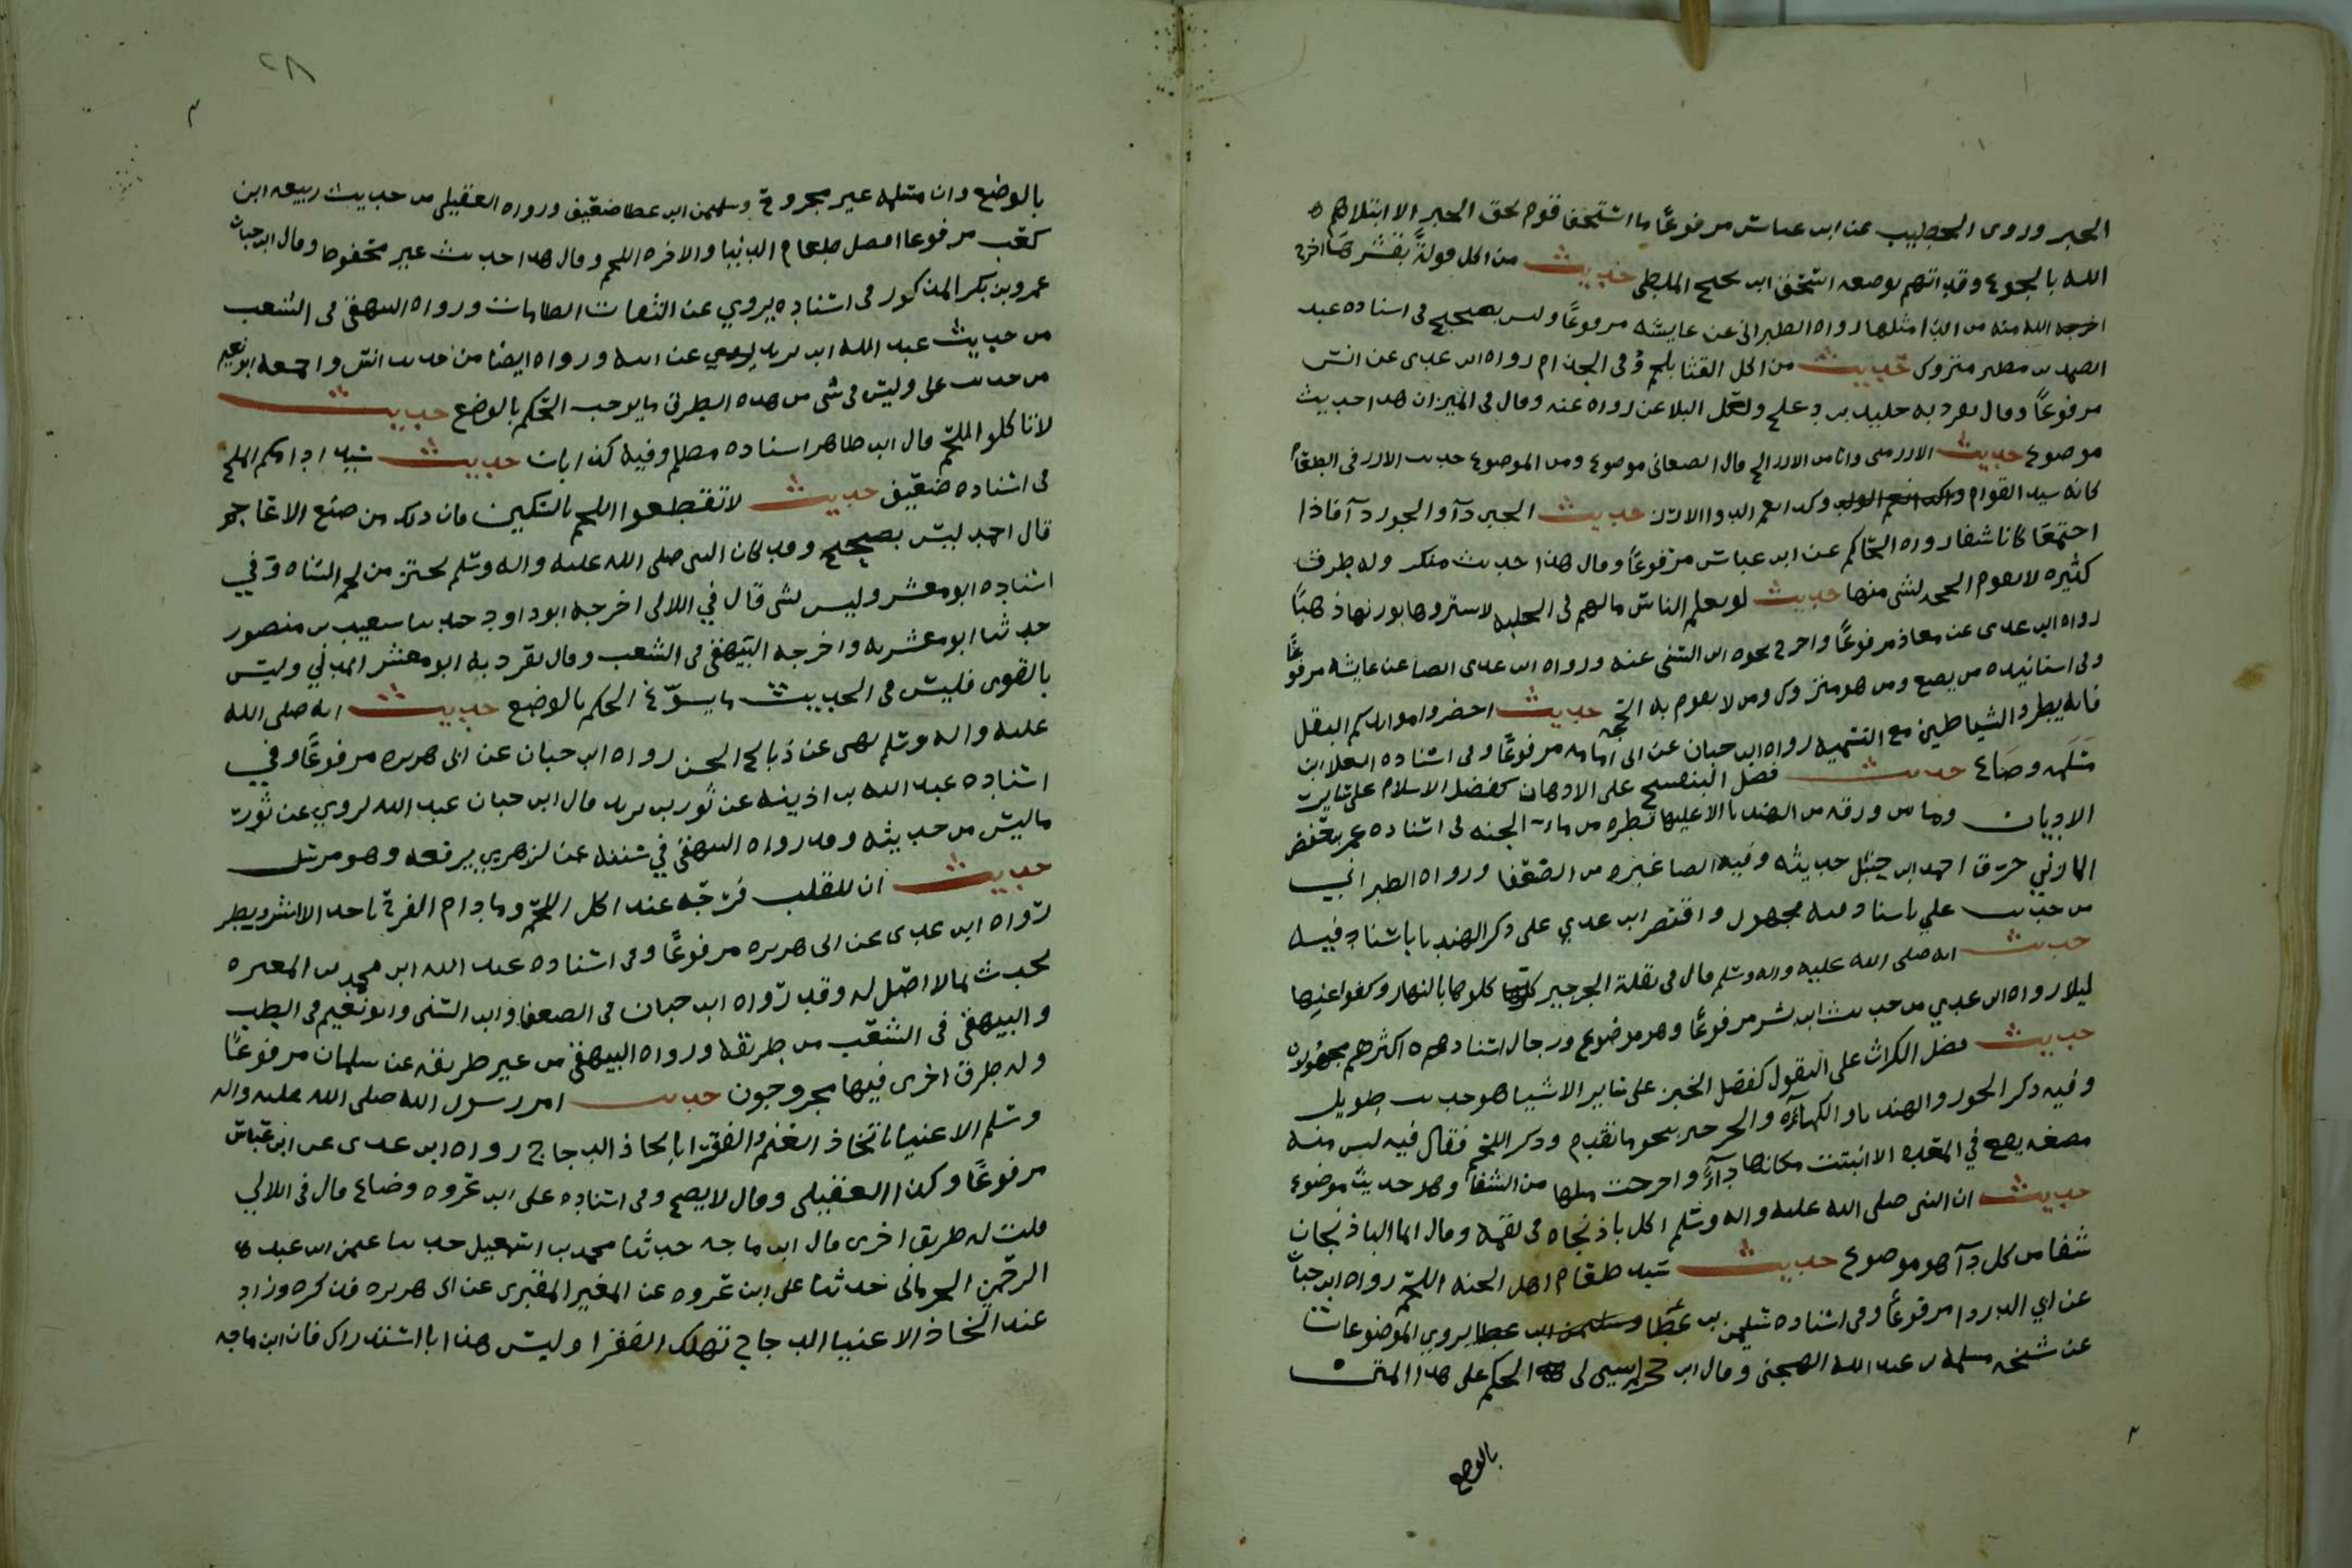 الخبز وروى الخطيب عن ابن عباس مرفوعًا ما استخف قوم بحق الخبز الا ابتلاهم
الله بالجوع وقد اتهم بوضعه اسحق ابن نجيح الملطي حديث من اكل فولةً بقشرها اخرج
اخرجه الله منه من الدا مثلها رواه الطبراني عن عايشه مرفوعًا وليس بصحيح في اسناده عبد
الصمد بن مطير متروك حديث من اكل القثا بلحم وقي الجذام رواه ابن عدي عن انس
مرفوعًا وقال تفرد به خليد بن دعلج ولعل البلا عن رواه عنه وقال في الميزان هذا حديث
موضوع حديث الارز مني وانا من الارز الخ قال الصعاني موضوع ومن الموضوع حديث الارز في الطعام
كانه سيد القوم وكذا نعم الدوا الارز حديث الجبن دآ والجوز دآ فاذا
اجتمعا كانا شفا رواه الحاكم عن ابن عباس مرفوعًا وقال هذا حديث منكر وله طرق
كثيره لا تقوم الحجه بشي منها حديث لو يعلم الناس ما لهم في الحلبه لاشتروها بوزنها ذهبًا
رواه ابن عدي عن معاذ مرفوعًا واخرج نحوه ابن السني عنه ورواه ابن عدي ايضا عن عايشه مرفوعًا
وفي اسانيده من يضع ومن هو متروك ومن لا تقوم به الحجه حديث احضروا موايدكم البقل
فانه يطرد الشياطين مع التسميه رواه ابن حبان عن ابي امامه مرفوعًا وفي اسناده العلا ابن
مسلمه وضاع حديث فضل البنفسج على الادهان كفضل الاسلام على ساير
الاديان وما من ورقه من الهندبا الا عليها قطره من مآء الجنه في اسناده عمر بن حفص
المازني حرق احمد ابن حنبل حديثه وفيه ايضا غيره من الضعفا ورواه الطبراني
من حديث علي باسناد فيه مجهول واقتصر ابن عدي على ذكر الهندبا باسناد فيه
حديث انه صلى الله عليه واله وسلم قال في بقلة الجرجير كلوها بالنهار وكفوا عنها
ليلا رواه ابن عدي من حديث ابن بشر مرفوعًا وهو موضوع ورجال اسناده اكثرهم مجهولون
حديث فضل الكراث على البقول كفضل الخبز على ساير الاشيا هو حديث طويل
وفيه ذكر الجوز والهندبا والكمآة والجرجير بنحو ما تقدم وذكر اللحم فقال فيه ليس منه
مضغه يصح في المعده الا انبتت مكانها دآءً واخرجت مثلها من الشفا وهو حديث موضوع
حديث ان النبي صلى الله عليه واله وسلم اكل باذنجانه في لقمه وقال انما الباذنجان
شفا من كل دآ هو موضوع حديث سيد طعام اهل الجنه اللحم رواه ابن حبان
عن ابي الدردا مرفوعًا وفي اسناده سليمن بن عطا يروي الموضوعات
عن شيخه مسلمه بن عبد الله الجهني وقال ابن حجر لم يتبين لي الحكم على هذا المتن
بالوضع
٢٨
بالوضع وان مسلمه غير مجروح وسليمن ابن عطا ضعيف ورواه العقيلي من حديث ربيعه ابن
كعب مرفوعا افضل طعام الدنيا والاخره اللحم وقال هذا حديث غير محفوظ وقال ابن حبان
عمرو بن بكر المذكور في اسناده يروي عن الثقات الطامات ورواه البيهقي في الشعب
من حديث عبد الله ابن بريد عن ابيه ورواه ايضا من حديث انس واخرجه ابو نعيم
من حديث علي وليس في شي من هذه الطرق ما يوجب الحكم بالوضع حديث
لا تاكلوا اللحم قال ابن طاهر اسناده مظلم وفيه كذابان حديث سيد ادامكم الملح
في اسناده ضعيف حديث لا تقطعوا اللحم بالسكين فان ذلك من صنع الاعاجم
قال احمد ليس بصحيح وقد كان النبي صلى الله عليه واله وسلم يحتز من لحم الشاه وفي
اسناده ابو معشر وليس بشي قال في اللالي اخرجه ابو داود حدثنا سعيد بن منصور
حدثنا ابو معشر به واخرجه البيهقي في الشعب وقال تفرد به ابو معشر المدني وليس
بالقوي فليس في الحديث ما يسوّغ الحكم بالوضع حديث انه صلى الله
عليه واله وسلم نهى عن ذبائح الجن رواه ابن حبان عن ابي هريره مرفوعًا وفي
اسناده عبد الله بن اذينه عن ثور بن يزيد قال ابن حبان عبد الله يروي عن ثور
ما ليس من حديثه وقد رواه البيهقي في سننه عن الزهري يرفعه وهو مرسل
حديث ان للقلب فرحه عند اكل اللحم وما دام الفرح باحد الا اشر وبطر
رواه ابن عدي عن ابي هريره مرفوعًا وفي اسناده عبد الله ابن محمد بن المغيره
يحدث بما لا اصل له وقد رواه ابن حبان في الضعفا وابن السني وابو نعيم في الطب
والبيهقي في الشعب من طريقه ورواه البيهقي من غير طريقه عن سلمان مرفوعًا
وله طرق اخرى فيها مجروحون حديث امر رسول الله صلى الله عليه واله
وسلم الاغنيا باتخاذ الغنم والفقرا باتخاذ الدجاج رواه ابن عدي عن ابن عباس
مرفوعًا وكذا العقيلي وقال لا يصح وفي اسناده علي ابن عروه وضاع قال في اللالي
قلت له طريق اخرى قال ابن ماجه حدثنا محمد بن اسمعيل حدثنا عثمن ابن عبد
الرحمن الحراني حدثنا علي ابن عروه عن المقبري عن ابي هريره فذكره وزاد
عند اتخاذ الاغنيا الدجاج تهلك الفقرا وليس هذا باستدراك فان ابن ماجه